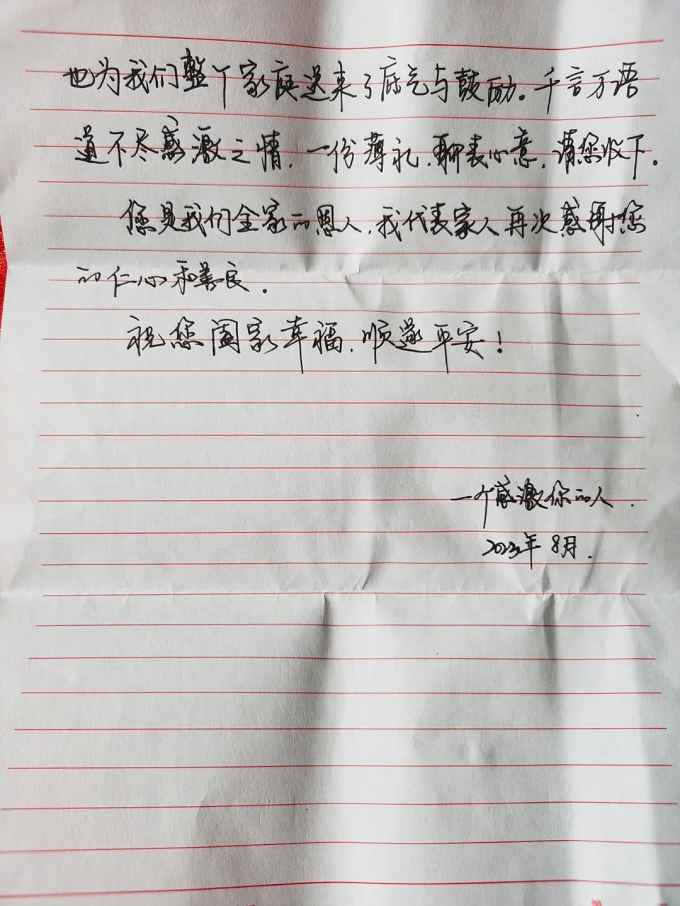 也为我们整个家庭送来了底气与鼓励。千言万语
道不尽感激之情，一份薄礼，聊表心意，请您收下。
您是我们全家的恩人，我代表家人再次感谢您
的仁心和善良。
祝您阖家幸福，顺遂平安！
一个感激你的人．
2023年8月．